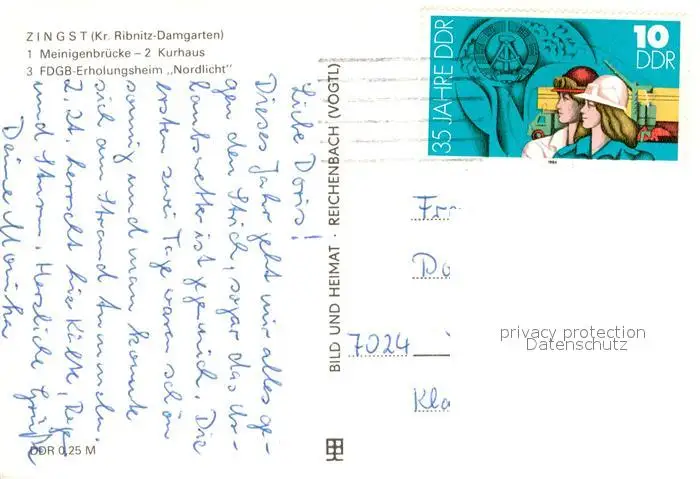 ZINGST (Kr. Ribnitz-Damgarten)
1 Meinigenbrücke – 2 Kurhaus
3 FDGB-Erholungsheim „Nordlicht"
Liebe Doris!
Dieses Jahr geht mir alles ge-
gen den Strich, sogar das Ur-
laubswetter ist gegen mich. Die
ersten zwei Tage waren schön
sonnig und man konnte
sich am Strand tummeln.
Z. Zt. herrscht hier Kälte, Regen
und Sturm. Herzliche Grüße
Deine Monika
DDR 0,25 M
BILD UND HEIMAT · REICHENBACH (VOGTL)
35 JAHRE DDR
10
DDR
1984
7024
privacy protection
Datenschutz